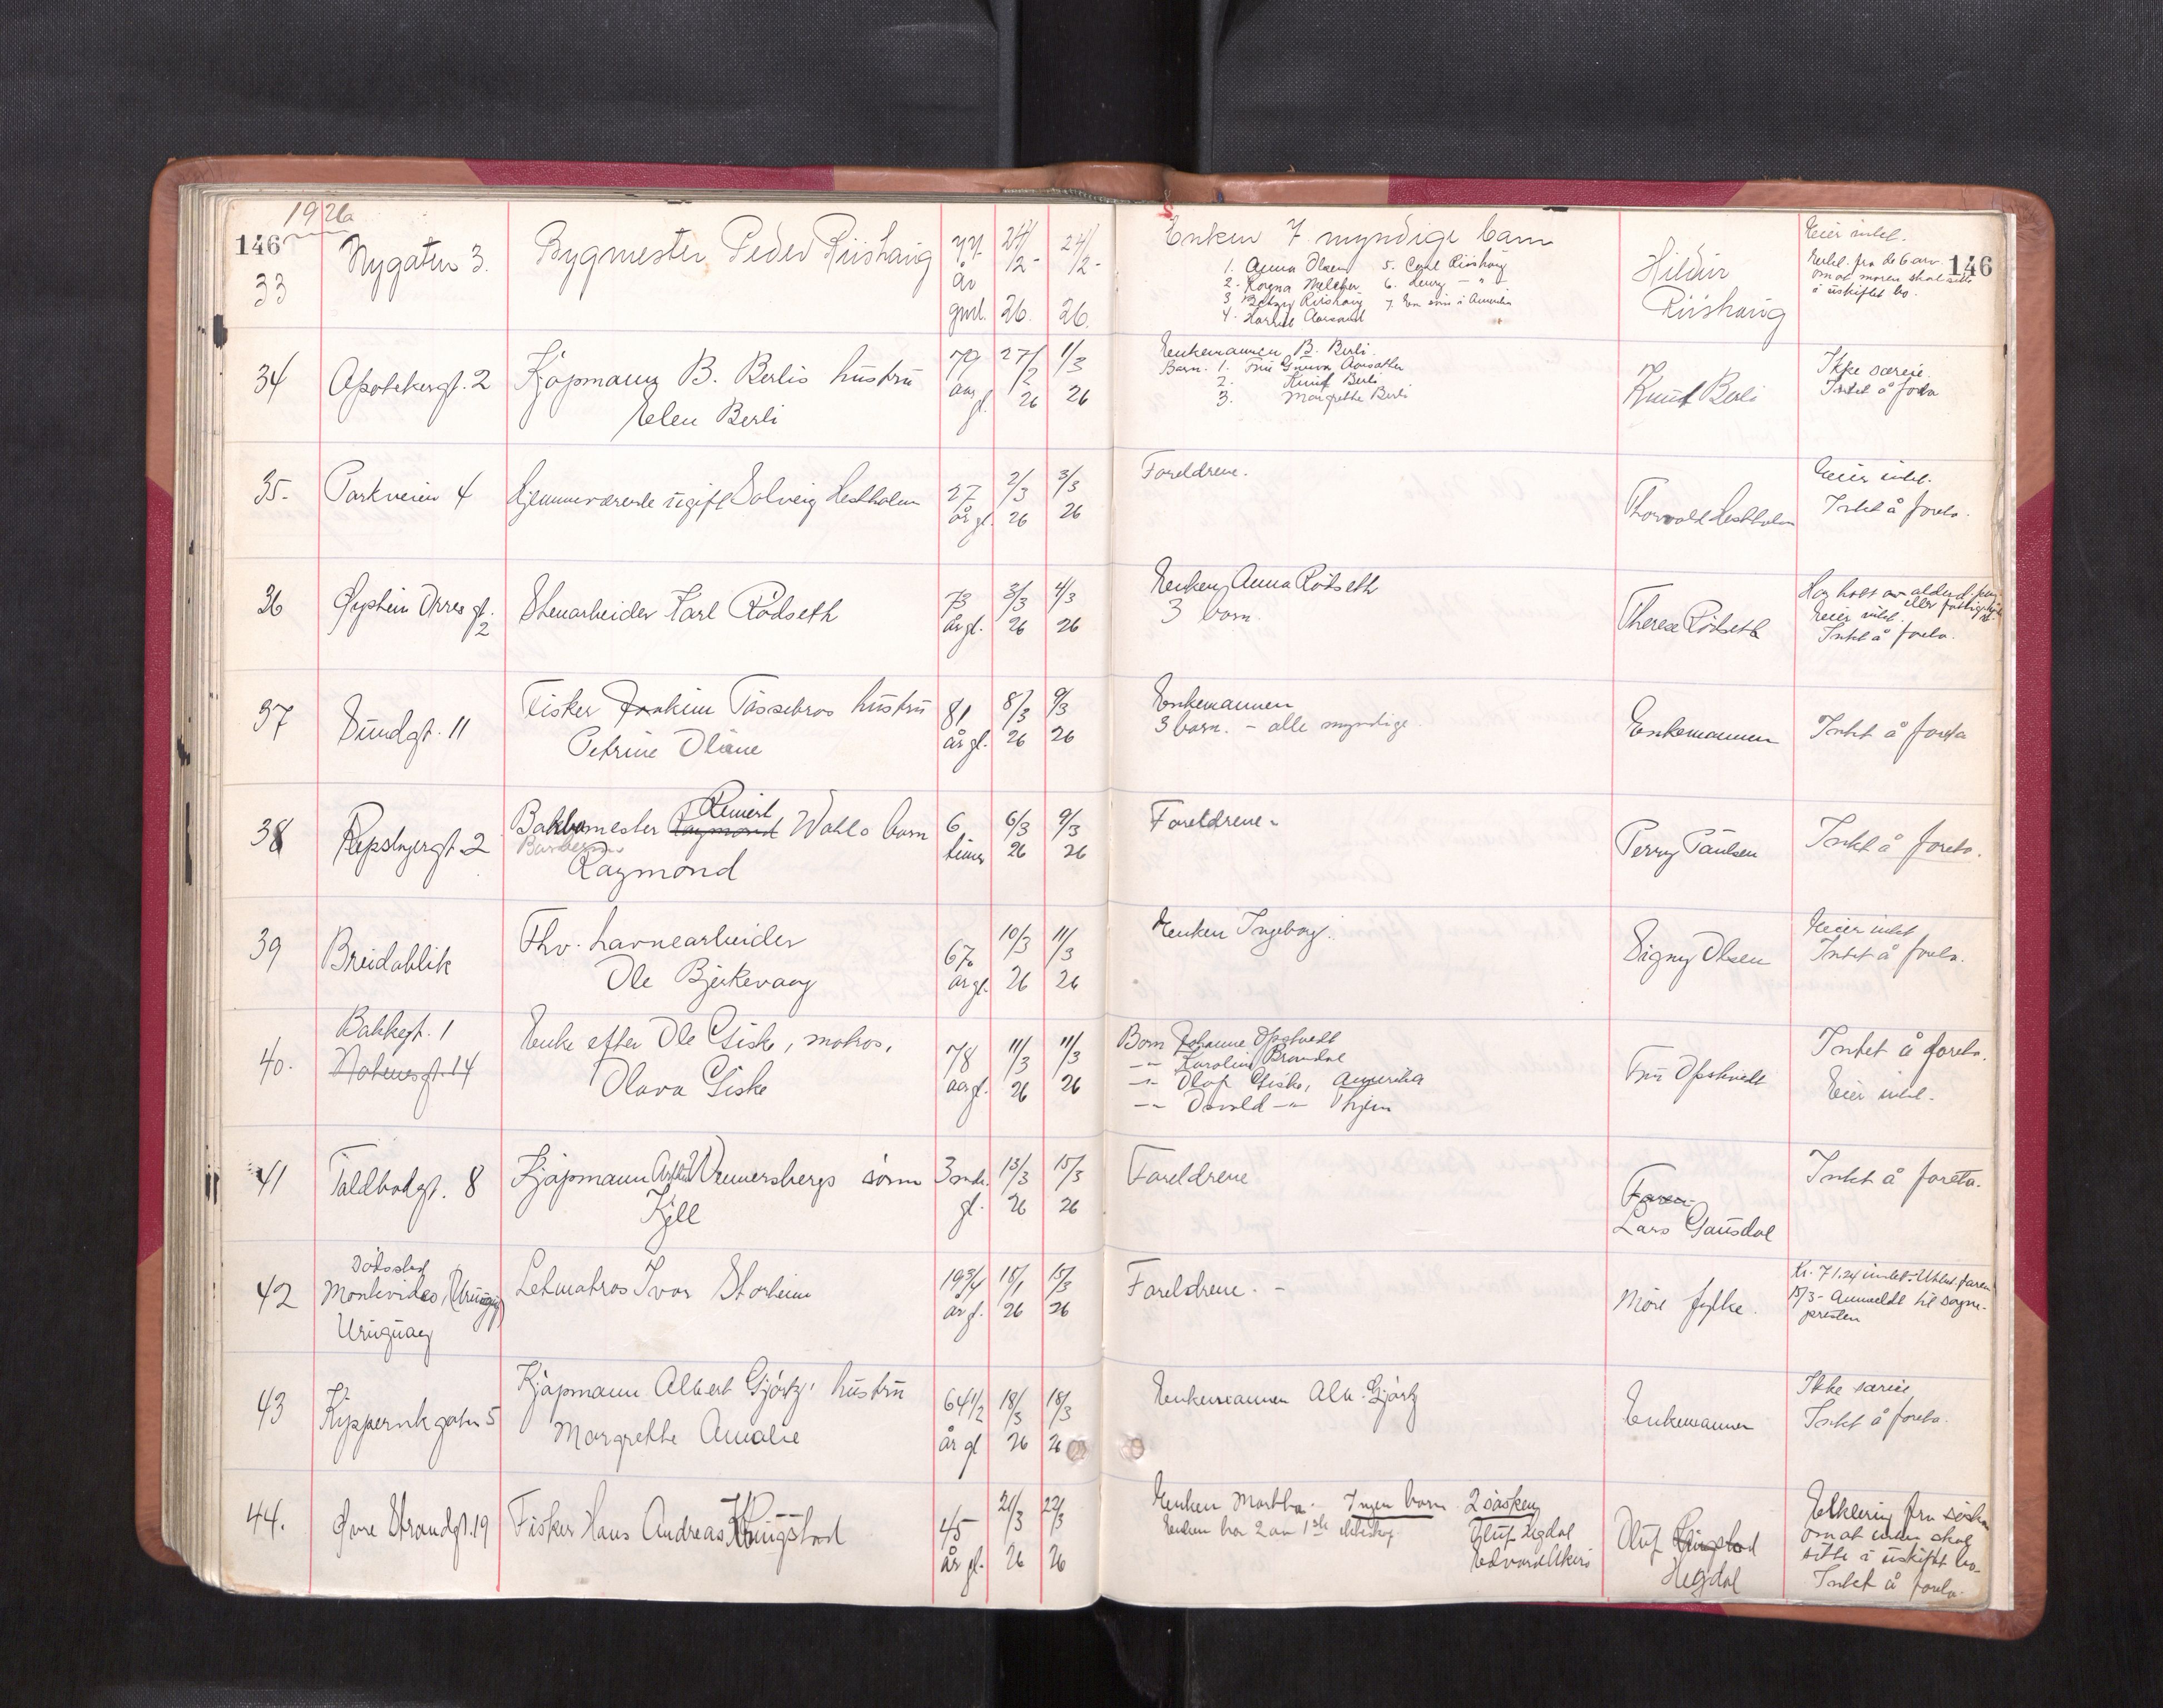 1926
146
33
Nygaten 3.
Bygmester Peder Riishaug
77 år gml.
24/2- 26.
24/2- 26.
Enken 7 myndige barn
1. Anna Olsen 5. Carl Riishaug
2. Ragna Melcher 6. Henry -"-
3 Betzy Riishaug 7. En sønn i Amerika
4. Harriet Aarsand
Hildur
Riishaug
Eier intet.
Erkl. fra de 6 arv.
om at moren skal sitte
i uskiftet bo.
146
34
Apotekergt. 2
Kjøpmann B. Berlis hustru
Elen Berli
79 aar gl.
27/2 26
1/3 26
Enkemannen B. Berli.
Barn. 1. Fru Gunva Aarsæther
2. Knut Berli
3. Margrethe Berli
Knut Berli
Ikke særeie.
Intet å foreta
35.
Parkveien 4
Hjemmeværende ugift Solveig Hestholm
27 år gl.
2/3 26
3/3 26
Foreldrene.
Thorvald Hestholm
Eier intet.
Intet å foreta.
36
Øystein Orres gt. 2
Stenarbeider Karl Rødseth
73 år gl.
3/3 26
4/3 26
Enken, Anna Rødseth
3 barn.
Therese Rødseth
Har hatt av alderd.
eller
Eier intet.
Intet å foreta.
37
Sundgt. 11
Fisker Joakim Tässebros hustru
Petrine Oliane
81 år gl.
8/3 26
9/3 26
Enkemannen
3 barn. - alle myndige.
Enkemannen
Intet å foreta
38
Repslagergt. 2
Reinert
Bakermester Raymond Wahls barn
Raymond
6 timer
6/3 26
9/3 26
Foreldrene.
Perry Paulsen
Intet å foreta.
39
Breidablik
Fhv. havnearbeider
Ole Bjerkevaag
67 år gl.
10/3 26
11/3 26
Enken Ingeborg.
Signy Olsen
Eier intet
Intet å foreta.
40.
Bakkegt. 1
Enke efter Ole Giske, matros,
Olava Giske
78 aar gl.
11/3 26
11/3 26
Barn Johanne Opstvedt
-"- Karoline Brandal
-"- Olaf Giske, Amerika
-"- Osvald -"- Thjem
Fru Opstvedt
Intet å foreta.
Eier intet.
41
Toldbodgt. 8
Kjøpmann Wennersbergs sønn
Kjell
3 mdr. gl.
13/3 26
15/3 26
Foreldrene
Faren
Lars Gausdal
Intet å foreta.
42
Dødssted
Montevideo,
Uruguay
Letmatros Ivar Storheim
19 3/4 år gl.
18/1 26
15/3 26
Foreldrene. -
Møre fylke.
Kr. 71.24 innbet. Utbet. faren
15/3 - Anmeldt til sogne-
presten
43
Kippervikgaten 5
Kjøpmann Albert Gjørtz' hustru
Margrethe Amalie
64 1/2 år gl
18/3 26
18/3 26
Enkemannen Alb. Gjørtz
Enkemannen
Ikke særeie,
Intet å foreta.
44.
Øvre Strandgt. 19
Fisker Hans Andreas Ringstad
45 år gl.
21/3 26
22/3 26
Enken Martha. Ingen barn. 2 søsken,
Enken har 2 av 1ste ekteskap. Oluf Hegdal
Edvard
Oluf Ringstad
Hegdal
Erklæring fra søsken
om at enken skal
sitte i uskiftet bo.
Intet å foreta.